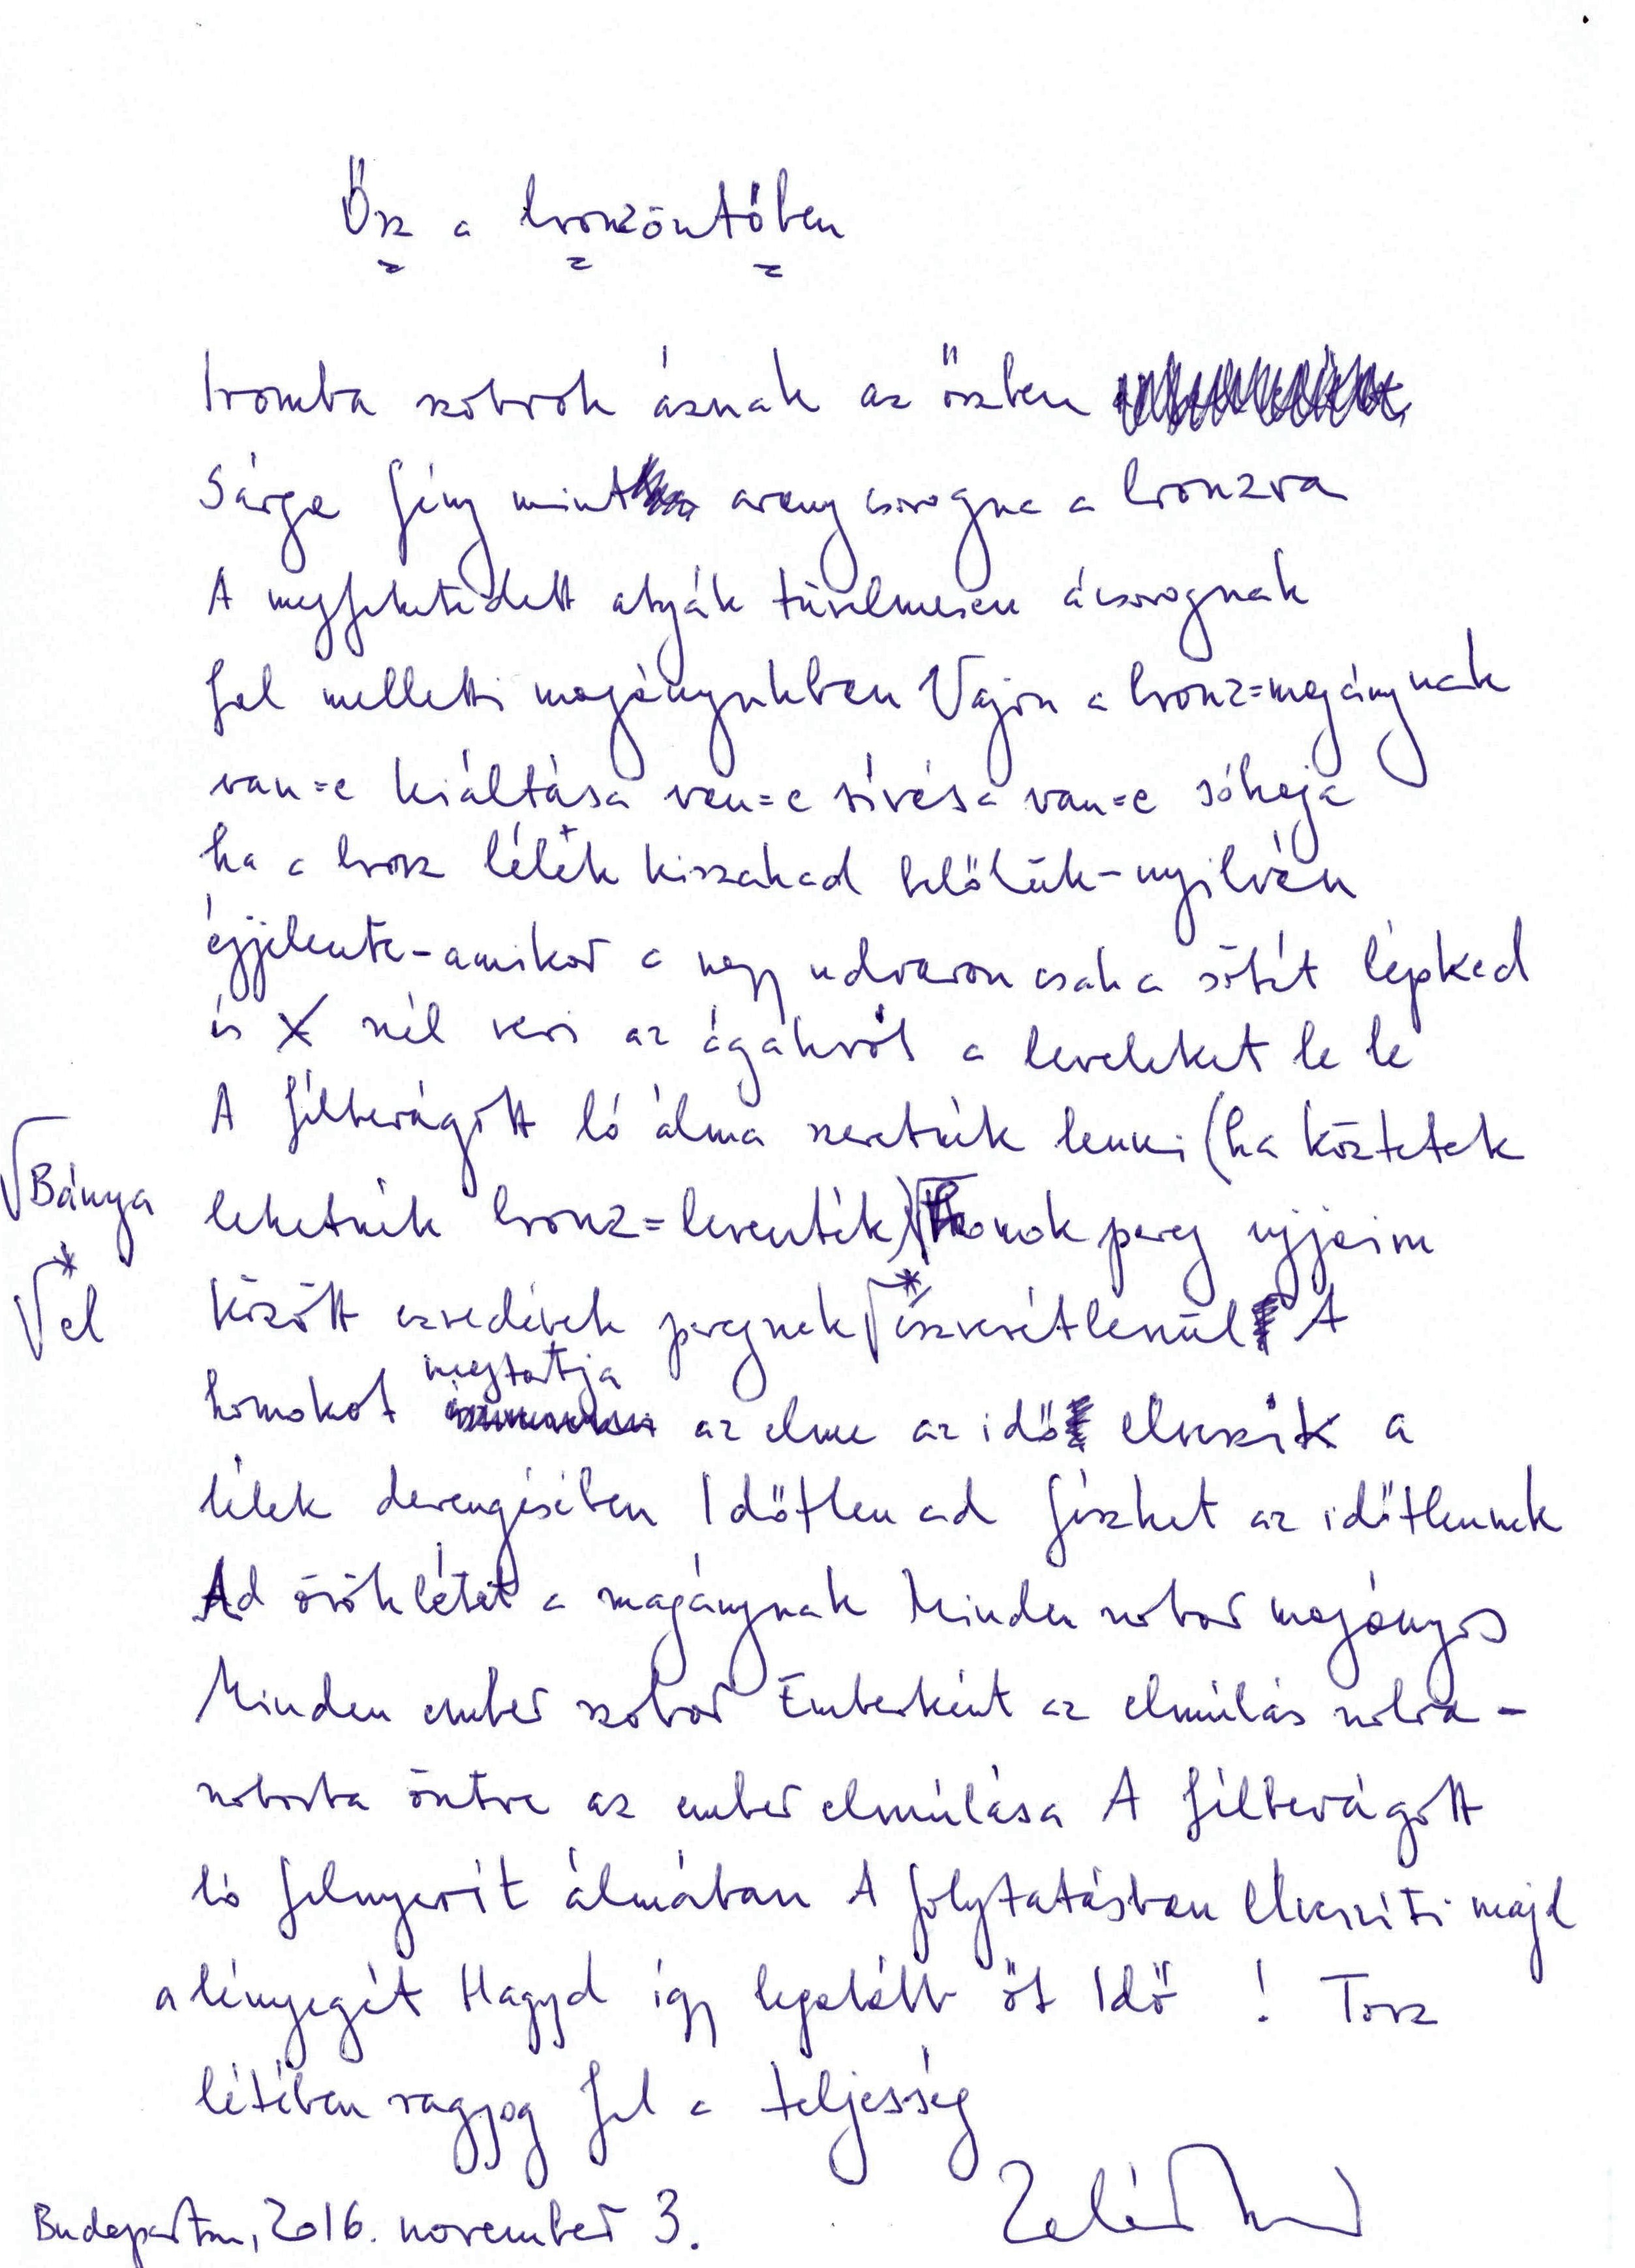 Ősz a bronzöntőben
bronzba szobrok ásznak az őszben
Sárga fény mint arany csorogna a bronzra
A megfeketedett atyák türelmesen ácsorognak
fal melletti magányukban Vajon a bronz=magánynak
van=e kiáltása van=e sívása van=e sóhaja
ha a bronz lélek kiszakad belőlük - nyilván
éjjelente - amikor a nagy udvaron csak a sötét lépked
és szél veri az ágakról a leveleket le le
A félbevágott ló álma szeretnék lenni (ha köztetek
√Bánya
lehetnék bronz=leventék) √homok pereg ujjaim
√* el
között ezredévek peregnek √* észrevétlenül A
megtartja
homokot az elme az idő elveszik a
lélek derengésében Időtlen ad fészket az időtlennek
Ad öröklétet a magánynak Minden szobor magányos
Minden ember szobor Emberként az elmúlás szobra -
szoborba öntve az ember elmúlása A félbevágott
ló felnyerít álmában A folytatásban elveszíti majd
a lényegét Hagyd így legalább őt Idő ! Torz
létében ragyog fel a teljesség
Budapesten, 2016. november 3.